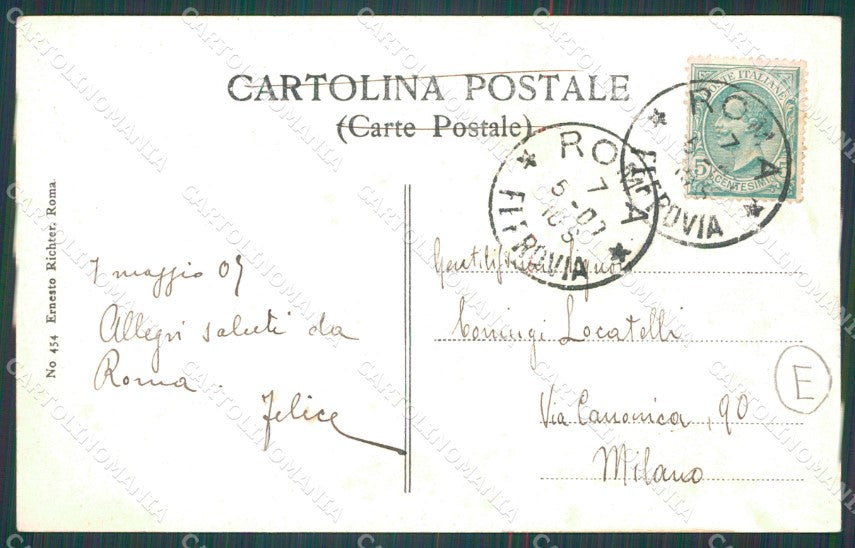 CARTOLINA POSTALE
(Carte Postale)
POSTE ITALIANE
5 CENTESIMI 5
ROMA
FERROVIA
7
5-07
16S
ROMA
FERROVIA
7
No 454 Ernesto Richter, Roma
7 maggio 07
Allegri saluti da
Roma
Felice
Gentilissimi Signori
Coniugi Locatelli
Via Canonica, 90
Milano
E
CARTOLINOMANIA